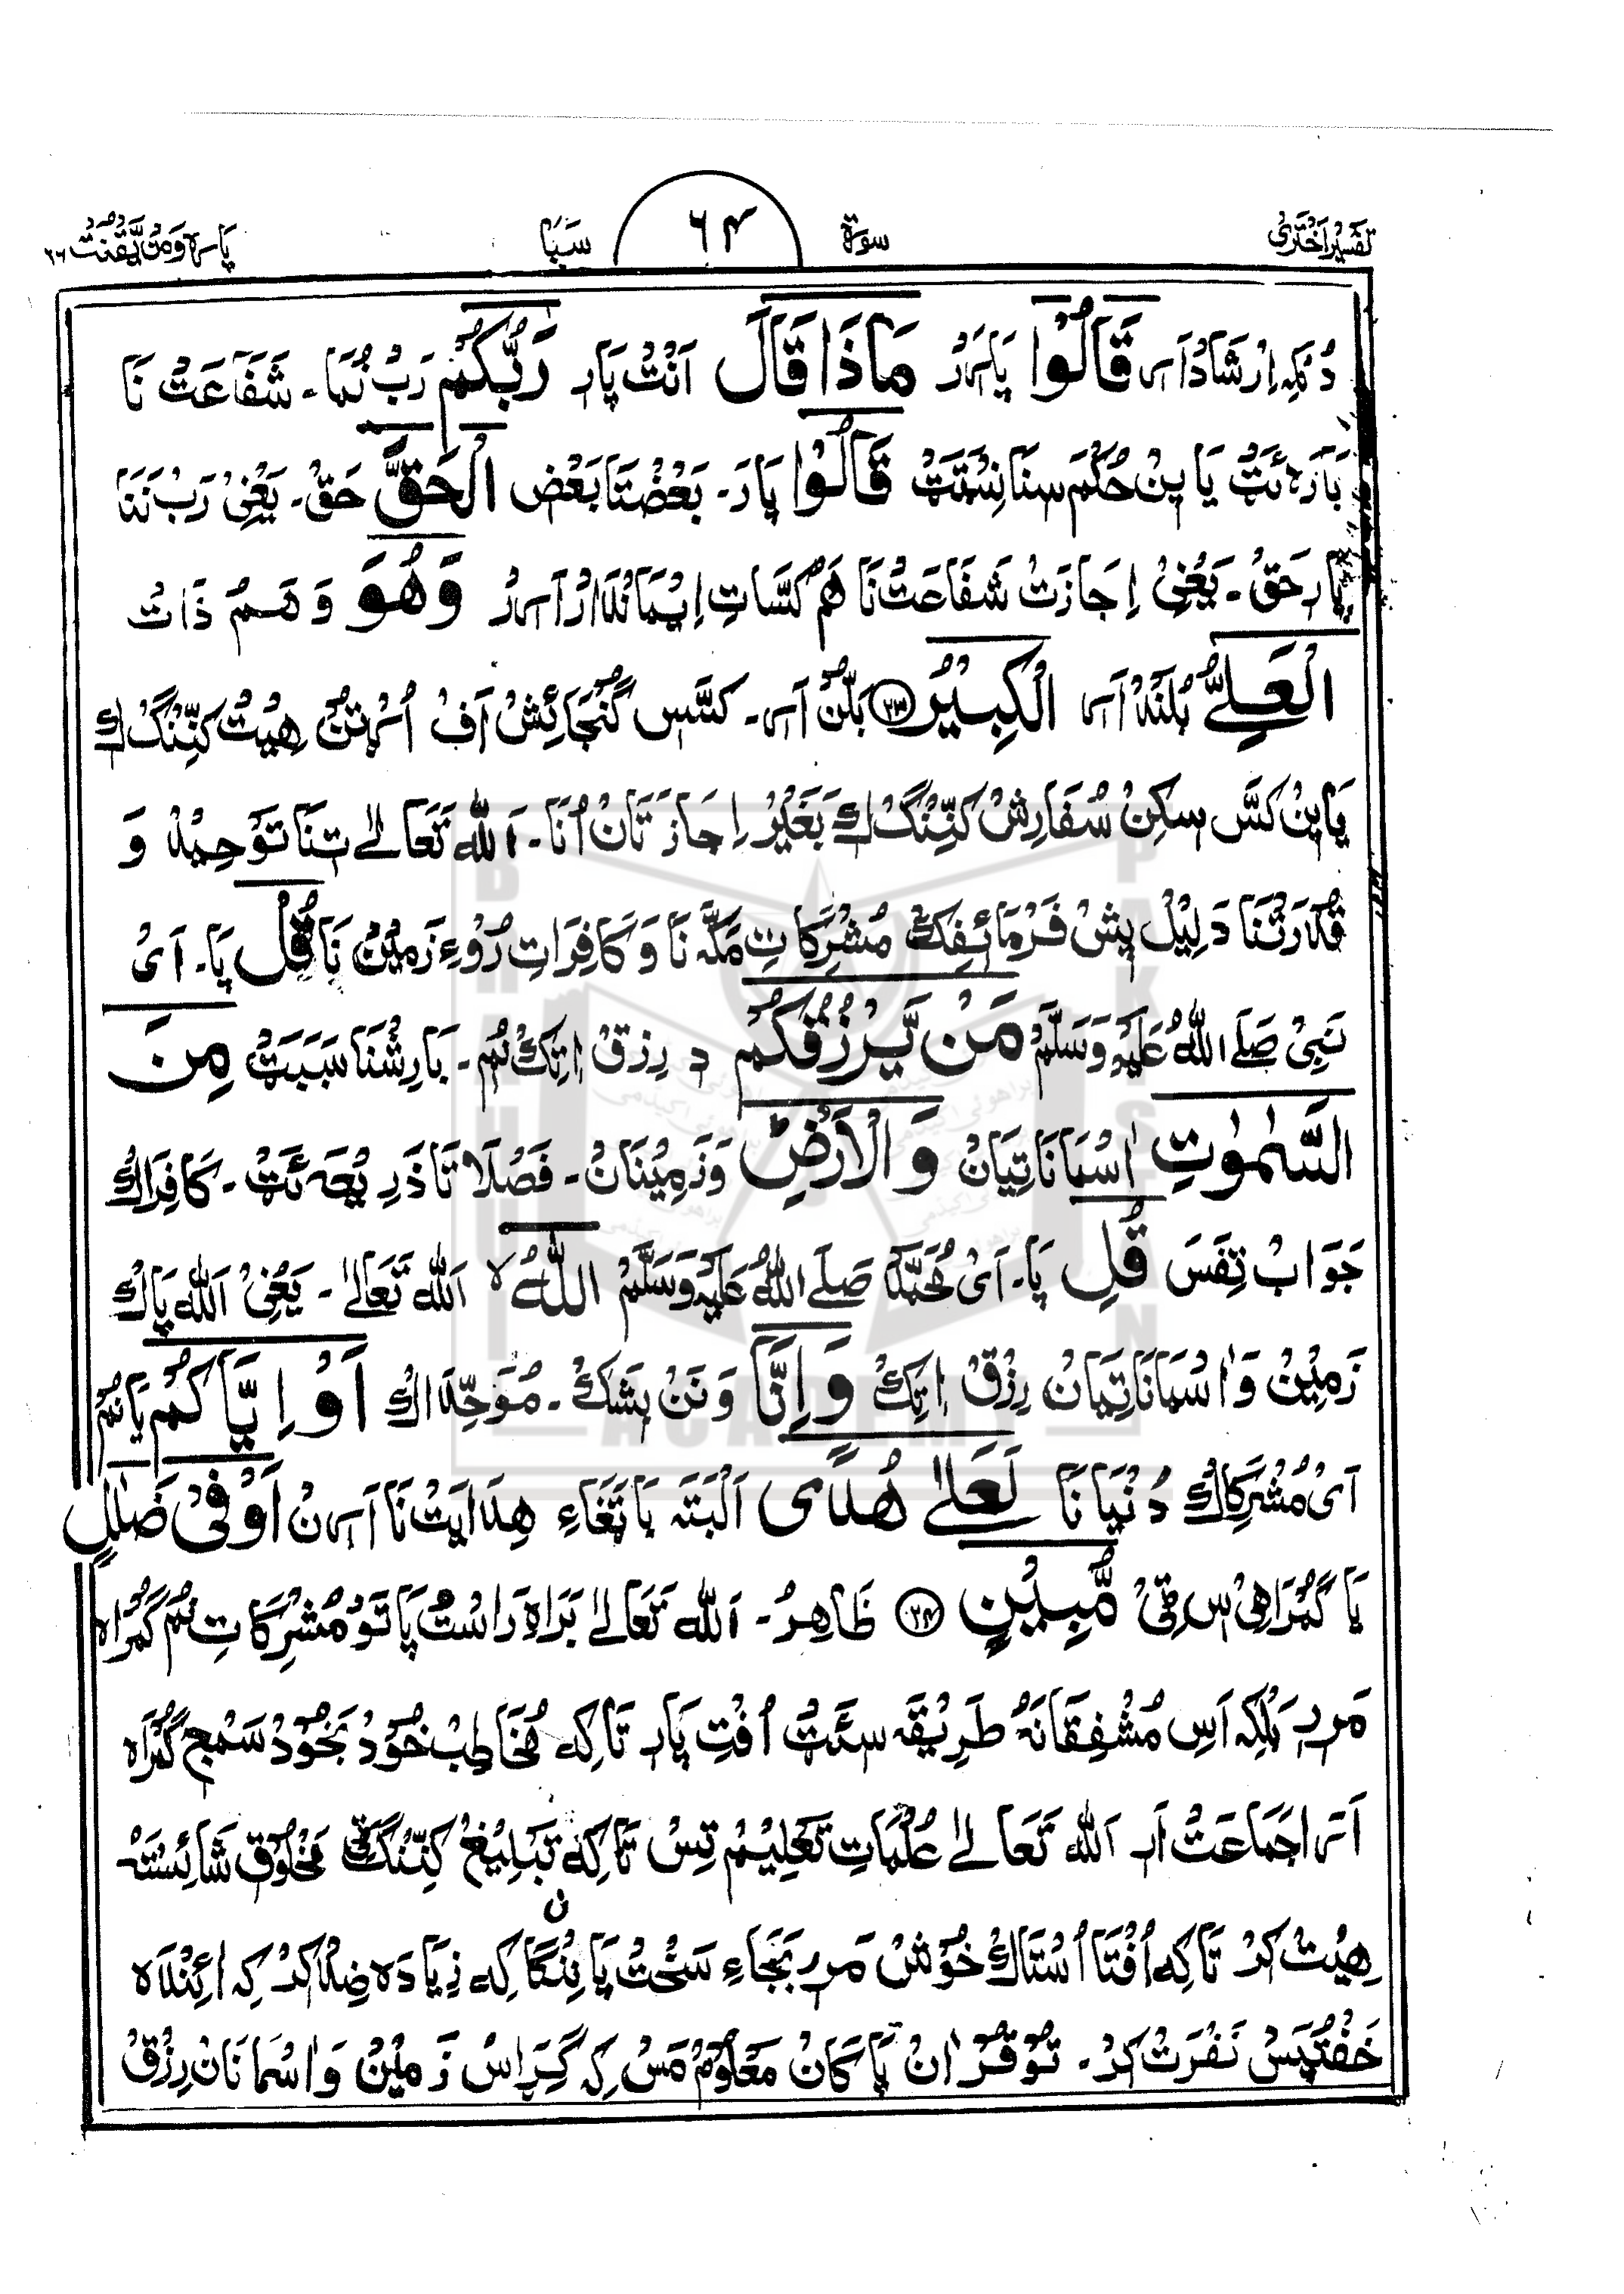 تفسیر اختری
سورۃ ۶۴ سَبَا
پارہ وَمَن یَّقنُت ۲۲
دُنکہ اِرشَاد اَرے قَالُوْا پَارَہ مَاذَا قَالَ اَنْتْ پَارِ رَبُّکُمْ رَبْ نُمَا۔ شَفَاعَتْ نَا
بَارَہ ئَٹْ یَا پِنْ حُکْمَ سنَا نِسْتَٹْ قَالُوْا پَارَ۔ بَعْضْتَا بَعْض الْحَقَّ حَقْ۔ یَعْنِیْ رَبْ نَنَا
پَارِ حَقْ۔ یَعْنِیْ اِجَازَتْ شَفَاعَتْ نَا ھَمْ کَسَّاتِ اِیْمَانْدَارْ وَھُوَ وَ ھَمْ ذَاتْ
الْعَلِیُّ بُلَنْد اَرے الْکَبِیْرُ ﴿۲۳﴾ بَلُّنْ اَرے۔ کَسَّس گُنْجَائِشْ اَفْ ھِیْتْ کَنِّنْگْ
یَا پِنْ کَسَّ سُفَارِشْ کَنِّنْگْ بَغَیْرْ اِجَازَتَانْ اُنَا۔ اَللہ تَعَالٰے تِنَا تَوْحِیْدْ وَ
قُدْرَتْنَا دَلِیْل پِشْ فَرْمَائِفِکْ مُشْرِکَاتِ مَکَّہ نَا وَ کَافِرَاتِ رُوْءِ زَمِیْنْ نَا قُلْ پَا۔ اَیْ
نَبِیْ صَلَے اللہُ عَلَیْہِ وَسَلَّمْ مَنْ یَّرْزُقُکُمْ دِ رِزقْ اِتِکْ نُمِ۔ بَارِشْنَا سَبَبَتْ مِنَ
السَّمٰوٰتِ اٰسْمَانَاتِیَانْ وَالْاَرْضِ وَ زَمِیْنَانْ۔ فَصْلَاتَا ذَرِیْعَہ ئَٹْ۔ کَافِرَاکْ
جَوَابْ تِفَسَ قُلِ پَا۔ اَیْ مُحَمَّدْ صَلَے اللہُ عَلَیْہِ وَسَلَّمْ اللہُ لا اَللہ تَعَالٰی۔ یَعْنِیْ اَللہ پَاکْ
زَمِیْنْ وَ اٰسْمَانَاتِیَانْ رِزْقْ اِتِکْ وَاِنَّا وَ نَنْ بِشَکْ۔ مُوَحِّدَاکْ اَوْ اِیَّاکُمْ یَا نُمْ
اَیْ مُشْرِکَاکْ دُنْیَا نَا لَعَلٰی ھُدًی اَلْبَتَہ ھِدَایَتْ نَا اَوْ فِیْ ضَلٰلٍ
یَا گُمْرَاھِیْ سِ مُّبِیْنٍ ﴿۲۴﴾ ظَاھِرُ۔ اَللہ تَعَالٰے بَرَاہِ رَاسْتْ پَاتَوْ مُشْرِکَاتِ نُمْ گُمْرَاہ
مَرِرِ بَلْکِہ اَسِ مُشْفِقَانَہ طَرِیْقَہ سَٹْ اُفْتِ پَارِ تَاکِہ مُخَاطِبْ خُوْد بَخُوْدْ سَمْجِ گُمْرَاہ
جَمَاعَتْ اَرِ اَللہ تَعَالٰے عُلْمَاتِ تَعْلِیْمْ تِسْ تَاکِہ تَبْلِیْغْ کَنِّنْگْٹِی مَخْلُوْقْ شَائِسْتَہ
ھِیْتْ کَرْ تَاکِہ اُفْتَا اُسْتَاکْ خُوْشْ مَرِر بَجَاءِ سَخْتْ پَانِنْگَا کِہ زِیَادَہ ضِدْ کَرْ کِہ اٰئِنْدَہ
خَفْتِپَسْ نَفْرَتْ کَرْ۔ تَوْ قُرْاٰنْ پَاکَانْ مَعْلُوْمْ مَسْ کِہ گِرَاسْ زَمِیْنْ وَ اٰسْمَانَانْ رِزْقْ